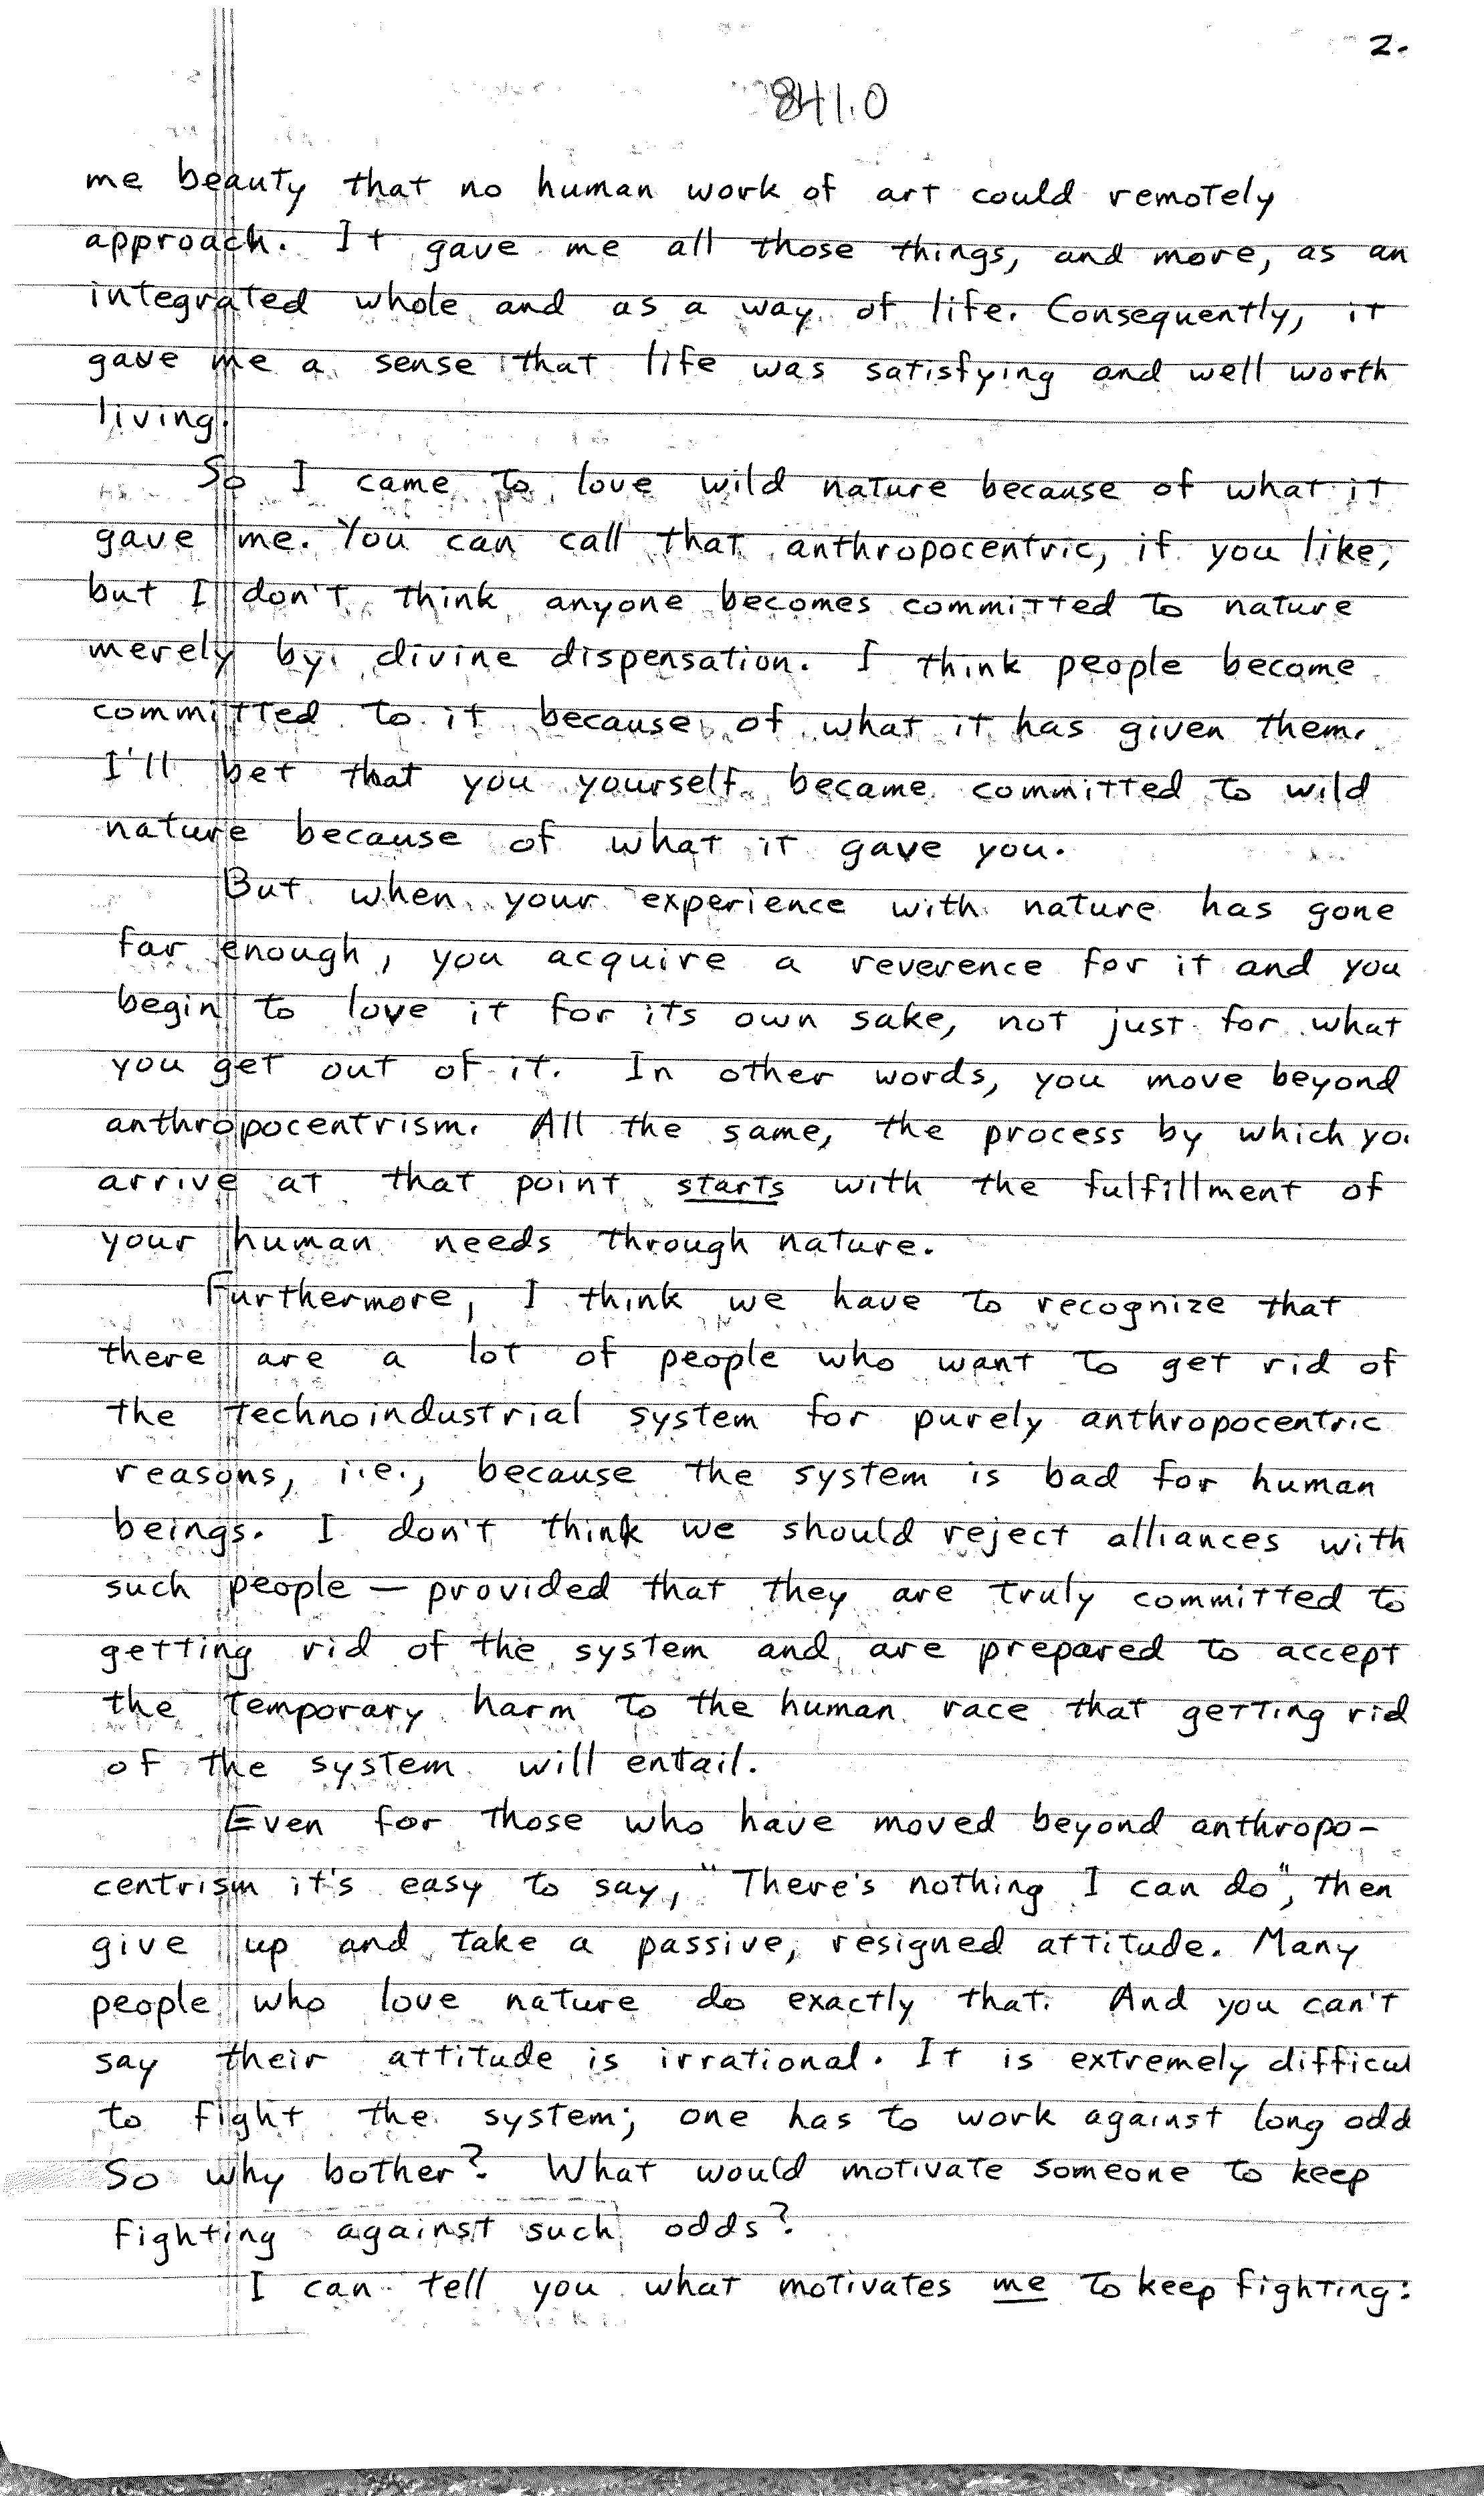 2.
841.0
me beauty that no human work of art could remotely
approach. It gave me all those things, and more, as an
integrated whole and as a way of life. Consequently, it
gave me a sense that life was satisfying and well worth
living.
So I came to love wild nature because of what it
gave me. You can call that anthropocentric, if you like,
but I don't think anyone becomes committed to nature
merely by divine dispensation. I think people become
committed to it because of what it has given them.
I'll bet that you yourself became committed to wild
nature because of what it gave you.
But when your experience with nature has gone
far enough, you acquire a reverence for it and you
begin to love it for its own sake, not just for what
you get out of it. In other words, you move beyond
anthropocentrism. All the same, the process by which yo
arrive at that point starts with the fulfillment of
your human needs through nature.
Furthermore, I think we have to recognize that
there are a lot of people who want to get rid of
the technoindustrial system for purely anthropocentric
reasons, i.e., because the system is bad for human
beings. I don't think we should reject alliances with
such people — provided that they are truly committed to
getting rid of the system and are prepared to accept
the temporary harm to the human race that getting rid
of the system will entail.
Even for those who have moved beyond anthropo-
centrism it's easy to say, "There's nothing I can do", then
give up and take a passive, resigned attitude. Many
people who love nature do exactly that. And you can't
say their attitude is irrational. It is extremely difficul
to fight the system; one has to work against long odd
So why bother? What would motivate someone to keep
fighting against such odds?
I can tell you what motivates me to keep fighting: